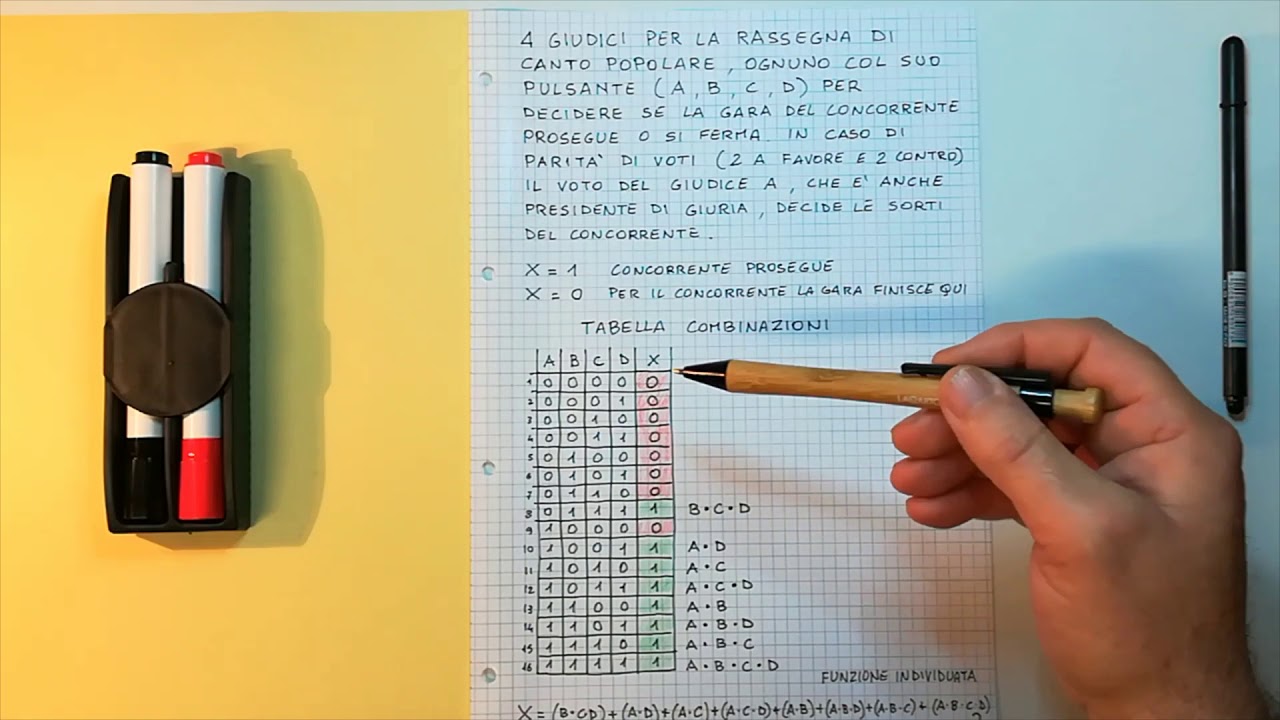 4 GIUDICI PER LA RASSEGNA DI
CANTO POPOLARE, OGNUNO COL SUO
PULSANTE (A, B, C, D) PER
DECIDERE SE LA GARA DEL CONCORRENTE
PROSEGUE O SI FERMA. IN CASO DI
PARITA' DI VOTI (2 A FAVORE E 2 CONTRO)
IL VOTO DEL GIUDICE A, CHE E' ANCHE
PRESIDENTE DI GIURIA, DECIDE LE SORTI
DEL CONCORRENTE.
X = 1 CONCORRENTE PROSEGUE
X = 0 PER IL CONCORRENTE LA GARA FINISCE QUI
TABELLA COMBINAZIONI
A B C D X
1 0 0 0 0 0
2 0 0 0 1 0
3 0 0 1 0 0
4 0 0 1 1 0
5 0 1 0 0 0
6 0 1 0 1 0
7 0 1 1 0 0
8 0 1 1 1 1 B·C·D
9 1 0 0 0 0
10 1 0 0 1 1 A·D
11 1 0 1 0 1 A·C
12 1 0 1 1 1 A·C·D
13 1 1 0 0 1 A·B
14 1 1 0 1 1 A·B·D
15 1 1 1 0 1 A·B·C
16 1 1 1 1 1 A·B·C·D
FUNZIONE INDIVIDUATA
X = (B·C·D) + (A·D) + (A·C) + (A·C·D) + (A·B) + (A·B·D) + (A·B·C) + (A·B·C·D)